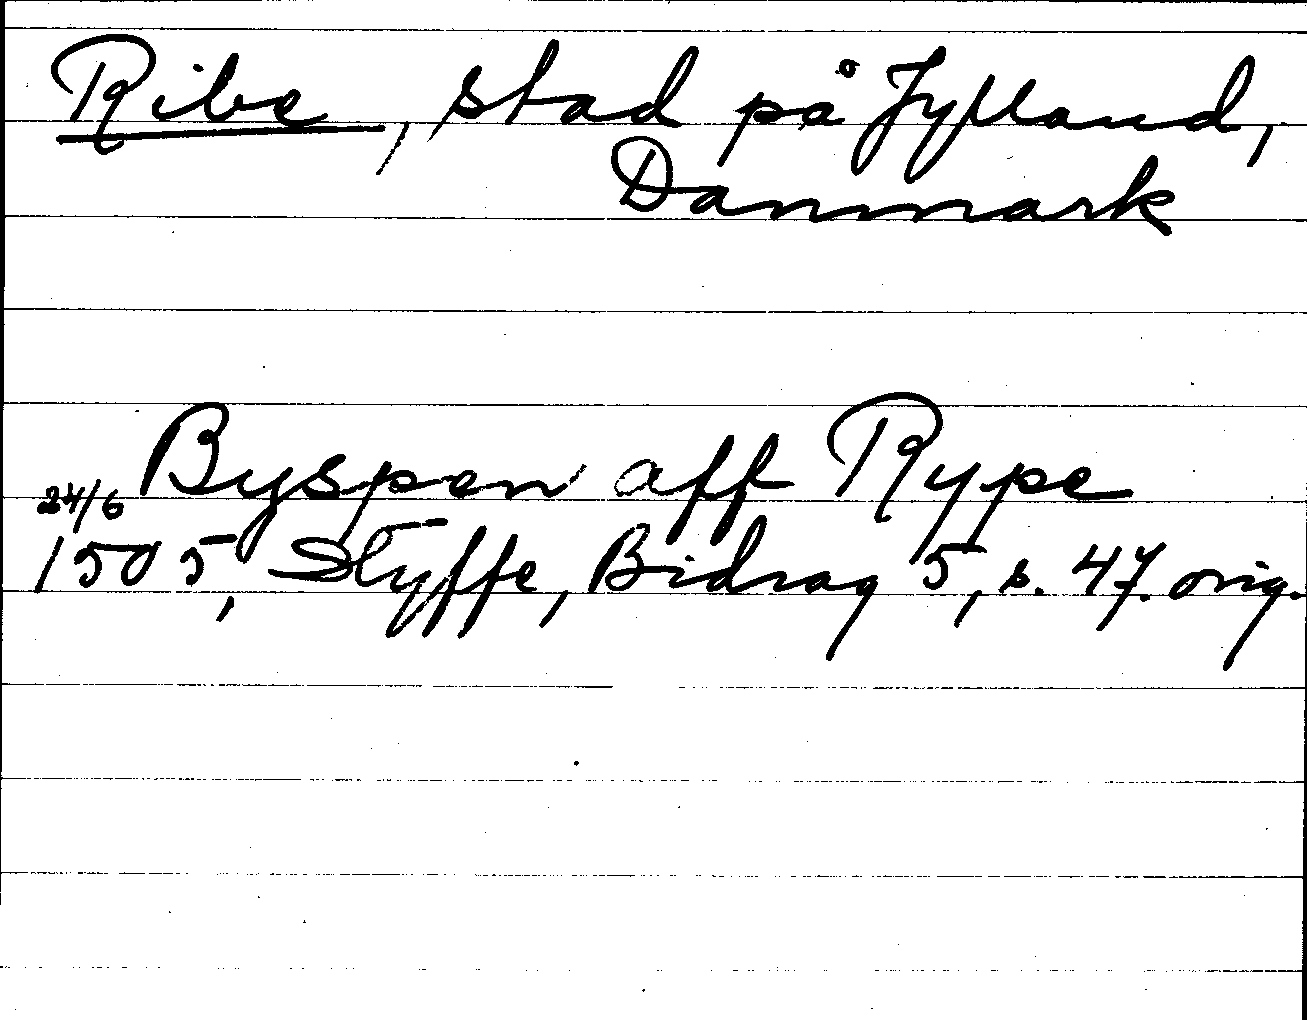 Ribe, stad på Jylland,
Danmark
Byspen aff Rype
24/6 1505, Styffe, Bidrag 5, s. 47. orig.